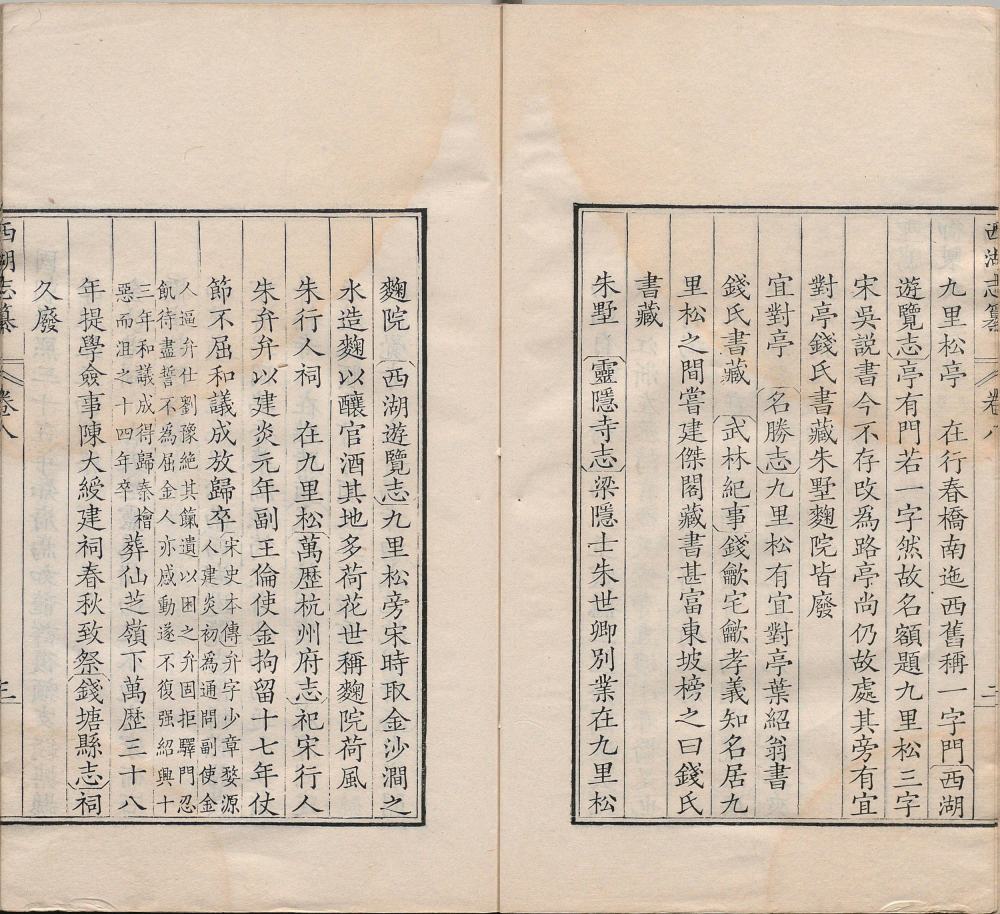 西湖志纂 卷八 二
九里松亭 在行春橋南迤西舊稱一字門西湖
遊覽志亭有門若一字然故名額題九里松三字
宋吳説書今不存改為路亭尚仍故處其旁有宜
對亭錢氏書藏朱墅麴院皆廢
宜對亭 名勝志九里松有宜對亭葉紹翁書
錢氏書藏 武林紀事錢歙宅歙孝義知名居九
里松之間嘗建傑閣藏書甚富東坡榜之曰錢氏
書藏
朱墅 靈隱寺志梁隱士朱世卿別業在九里松
麴院 西湖遊覽志九里松旁宋時取金沙澗之
水造麴以釀官酒其地多荷花世稱麴院荷風
朱行人祠 在九里松萬歷杭州府志祀宋行人
朱弁弁以建炎元年副王倫使金拘留十七年仗
節不屈和議成放歸卒宋史本傳弁字少章婺源
人建炎初為通問副使金
人逼弁仕劉豫絶其餼遺以困之弁固拒驛門忍
飢待盡誓不為屈金人亦感動遂不復强紹興十
三年和議成得歸秦檜
惡而沮之十四年卒
葬仙芝嶺下萬歷三十八
年提學僉事陳大綬建祠春秋致祭錢塘縣志祠
久廢
西湖志纂 卷八 三